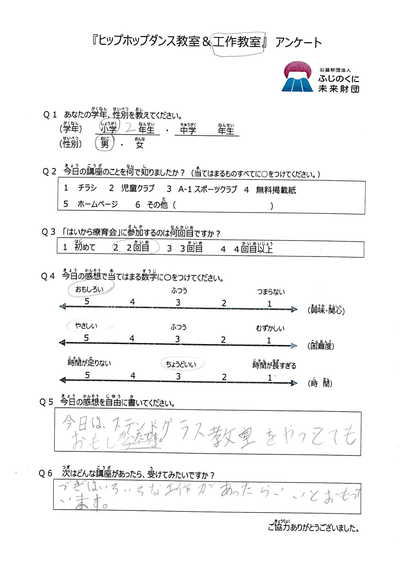 『ヒップホップダンス教室＆工作教室』 アンケート
公益財団法人
ふじのくに
未来財団
Q１ あなたの学年、性別を教えてください。
(学年) 小学 2 年生 ・ 中学 年生
(性別) 男 ・ 女
Q２ 今日の講座のことを何で知りましたか？（当てはまるものすべてに○をつけてください。）
1 チラシ 2 児童クラブ 3 A-1スポーツクラブ 4 無料掲載紙
5 ホームページ 6 その他（ ）
Q３ 「はいから療育会」に参加するのは何回目ですか？
1 初めて 2 2回目 3 3回目 4 4回目以上
Q４ 今日の感想で当てはまる数字に○をつけてください。
おもしろい ふつう つまらない
5 4 3 2 1 (興味・関心)
やさしい ふつう むずかしい
5 4 3 2 1 (困難度)
時間が足りない ちょうどいい 時間が長すぎる
5 4 3 2 1 (時 間)
Q５ 今日の感想を自由に書いてください。
今日は、ステンドグラス教室をやってても
おもし
Q６ 次はどんな講座があったら、受けてみたいですか？
つぎはいろいろな工作があったらいいとおもって
います。
ご協力ありがとうございました。